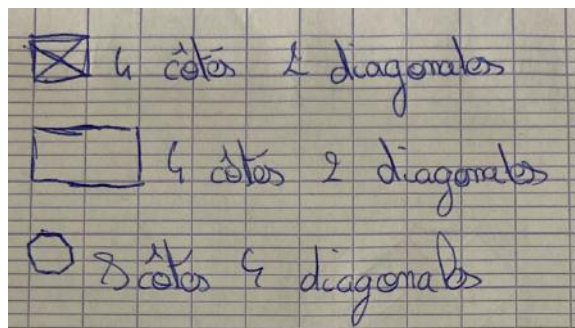 4 côtés 2 diagonales
4 côtés 2 diagonales
8 côtés 4 diagonales